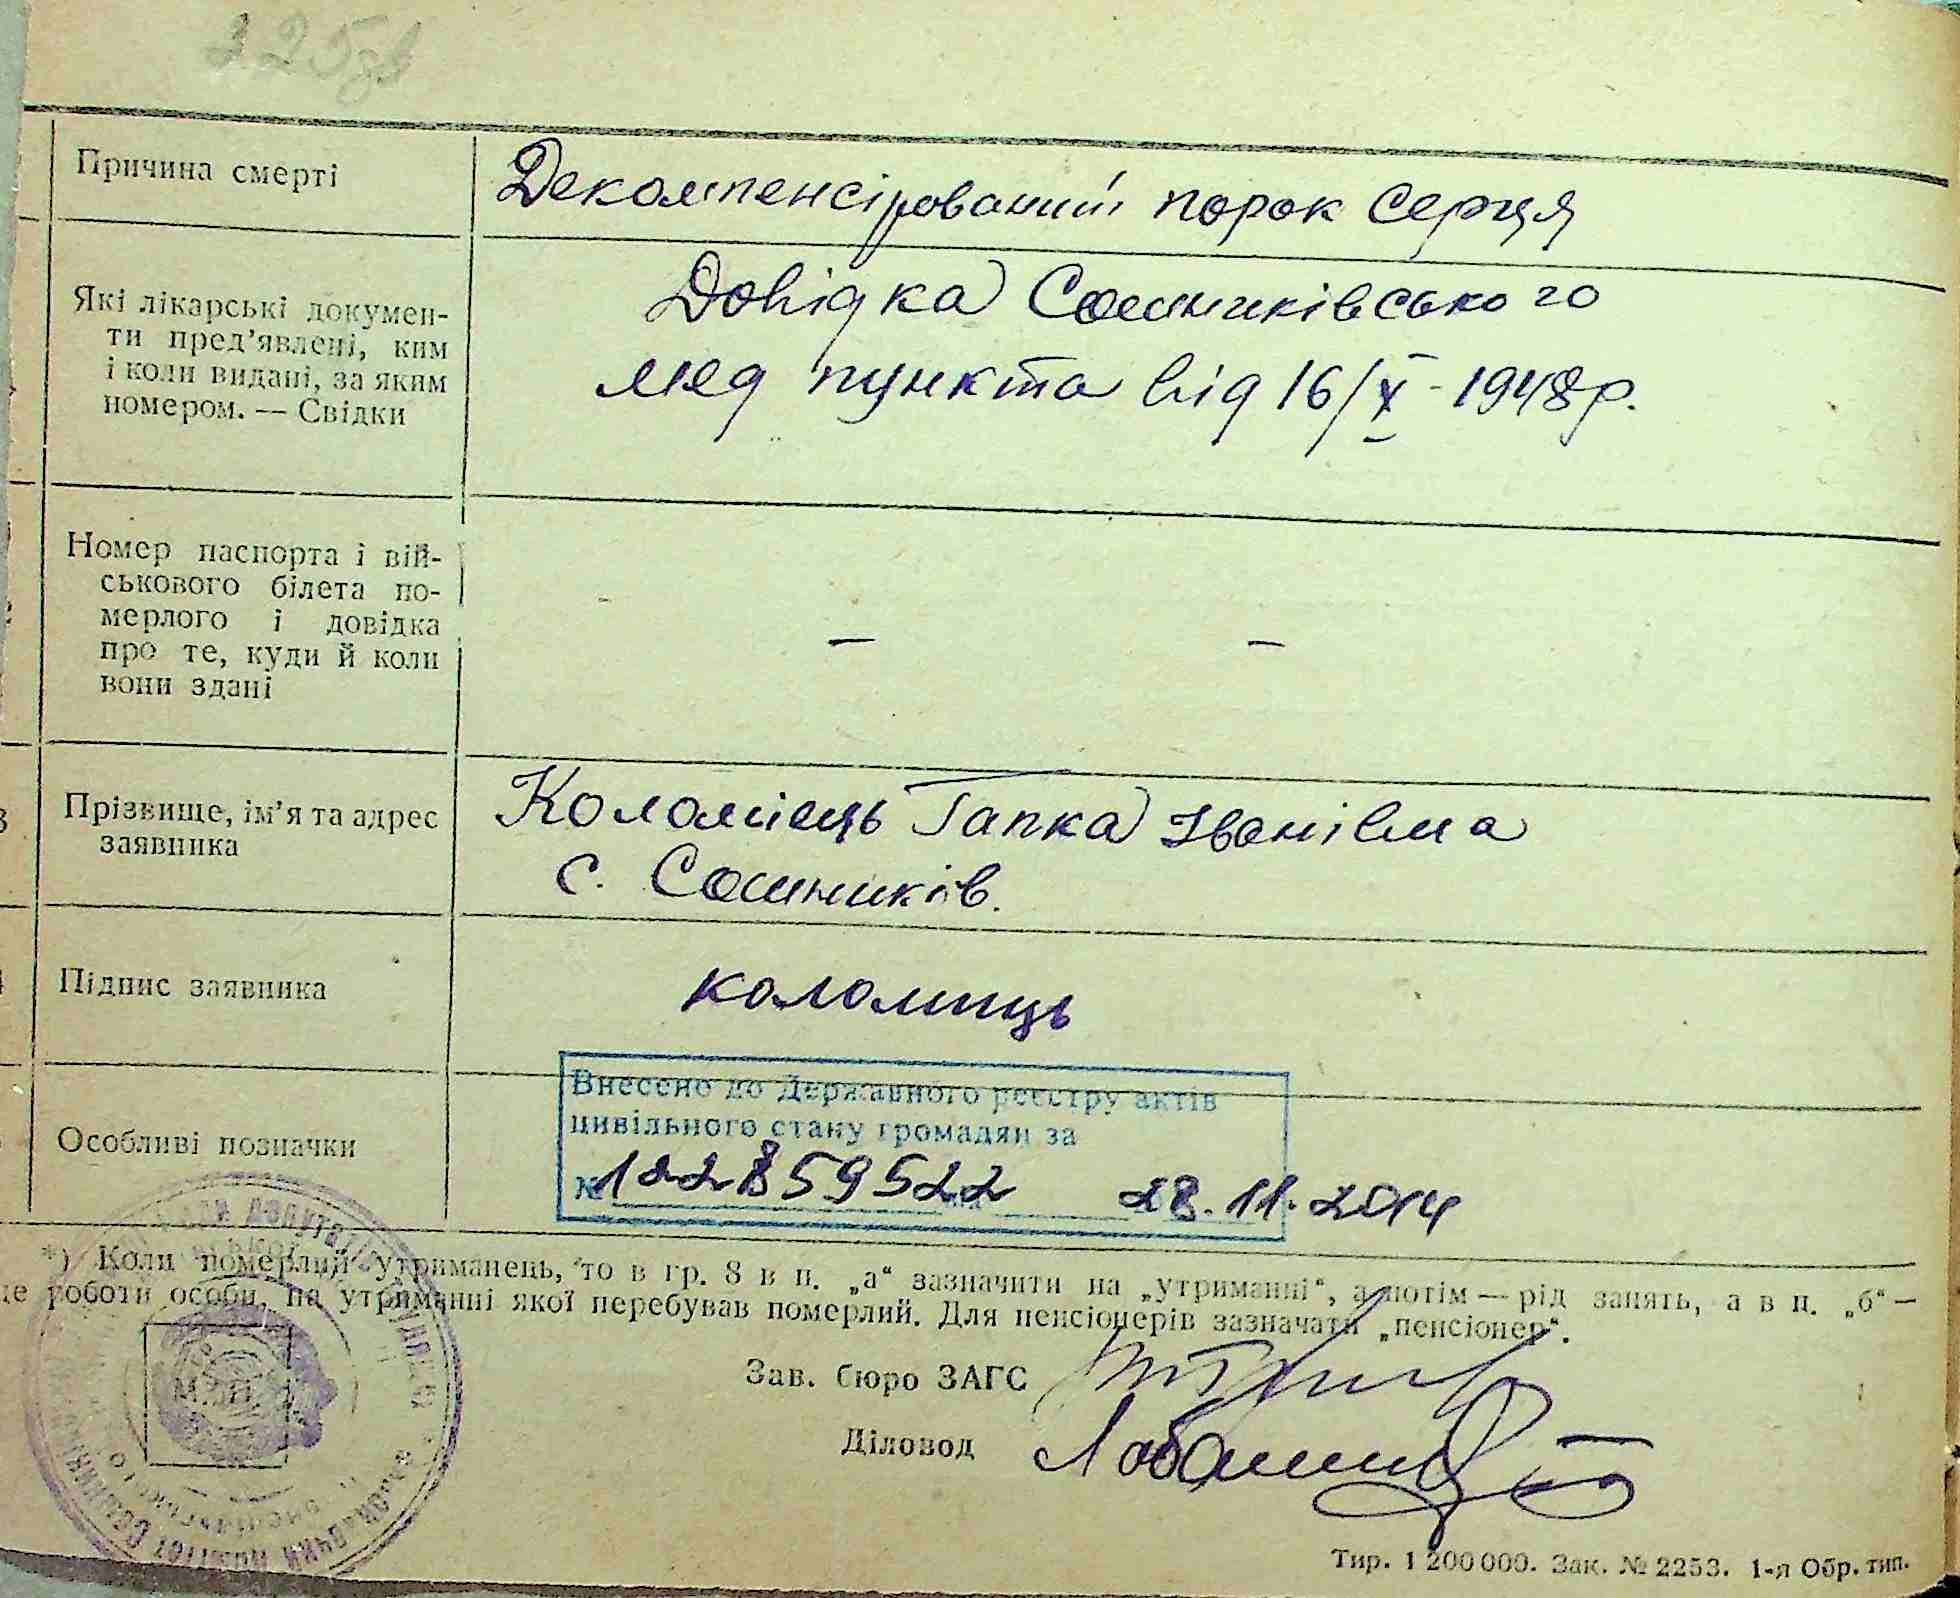 225зв
Причина смерті
Декомпенсірований порок серця
Які лікарські докумен-
ти пред'явлені, ким
і коли видані, за яким
номером. — Свідки
Довідка Сошниківського
мед пункта від 16/X - 1948р.
Номер паспорта і вій-
ськового білета по-
мерлого і довідка
про те, куди й коли
вони здані
— —
Прізвище, ім'я та адрес
заявника
Коломієць Гапка Іванівна
с. Сошників.
Підпис заявника
коломиць
Особливі позначки
Внесено до Державного реєстру актів
цивільного стану громадян за
№ 122859522 28.11.2014
*) Коли померлий утриманець, то в гр. 8 в п. „а“ зазначити на „утриманні“, а потім — рід занять, а в п. „б“ —
це роботи особи, на утриманні якої перебував померлий. Для пенсіонерів зазначати „пенсіонер“.
М.П.
Зав. бюро ЗАГС
Діловод
Тир. 1 200 000. Зак. № 2253. 1-я Обр. тип.